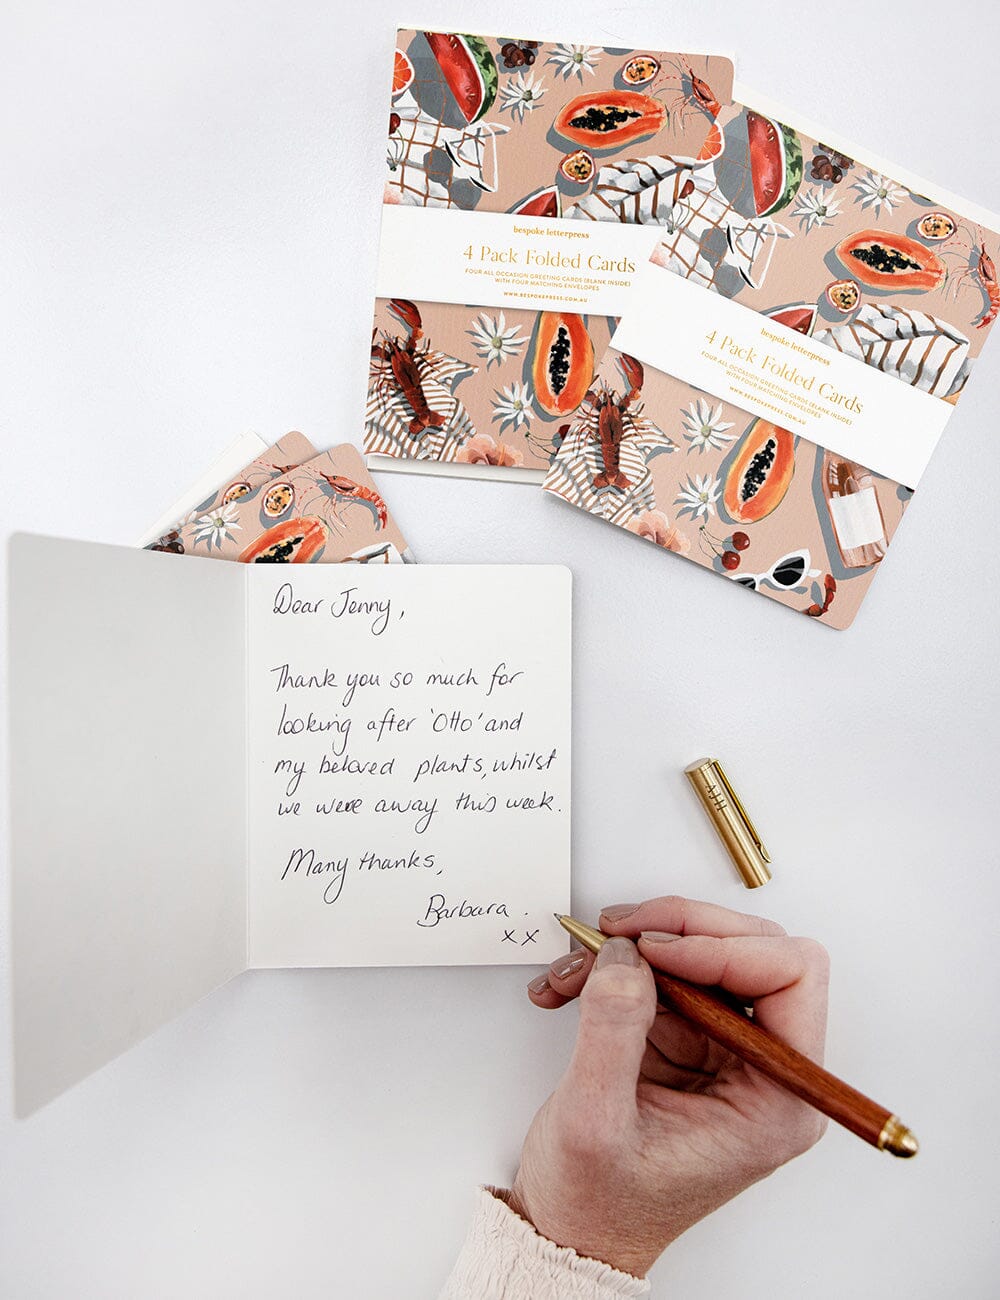 bespoke letterpress
4 Pack Folded Cards
FOUR ALL OCCASION GREETING CARDS (BLANK INSIDE)
WITH FOUR MATCHING ENVELOPES
WWW.BESPOKEPRESS.COM.AU
bespoke letterpress
4 Pack Folded Cards
FOUR ALL OCCASION GREETING CARDS (BLANK INSIDE)
WITH FOUR MATCHING ENVELOPES
WWW.BESPOKEPRESS.COM.AU
Dear Jenny,
Thank you so much for
looking after 'Otto' and
my beloved plants, whilst
we were away this week.
Many thanks,
Barbara.
xx